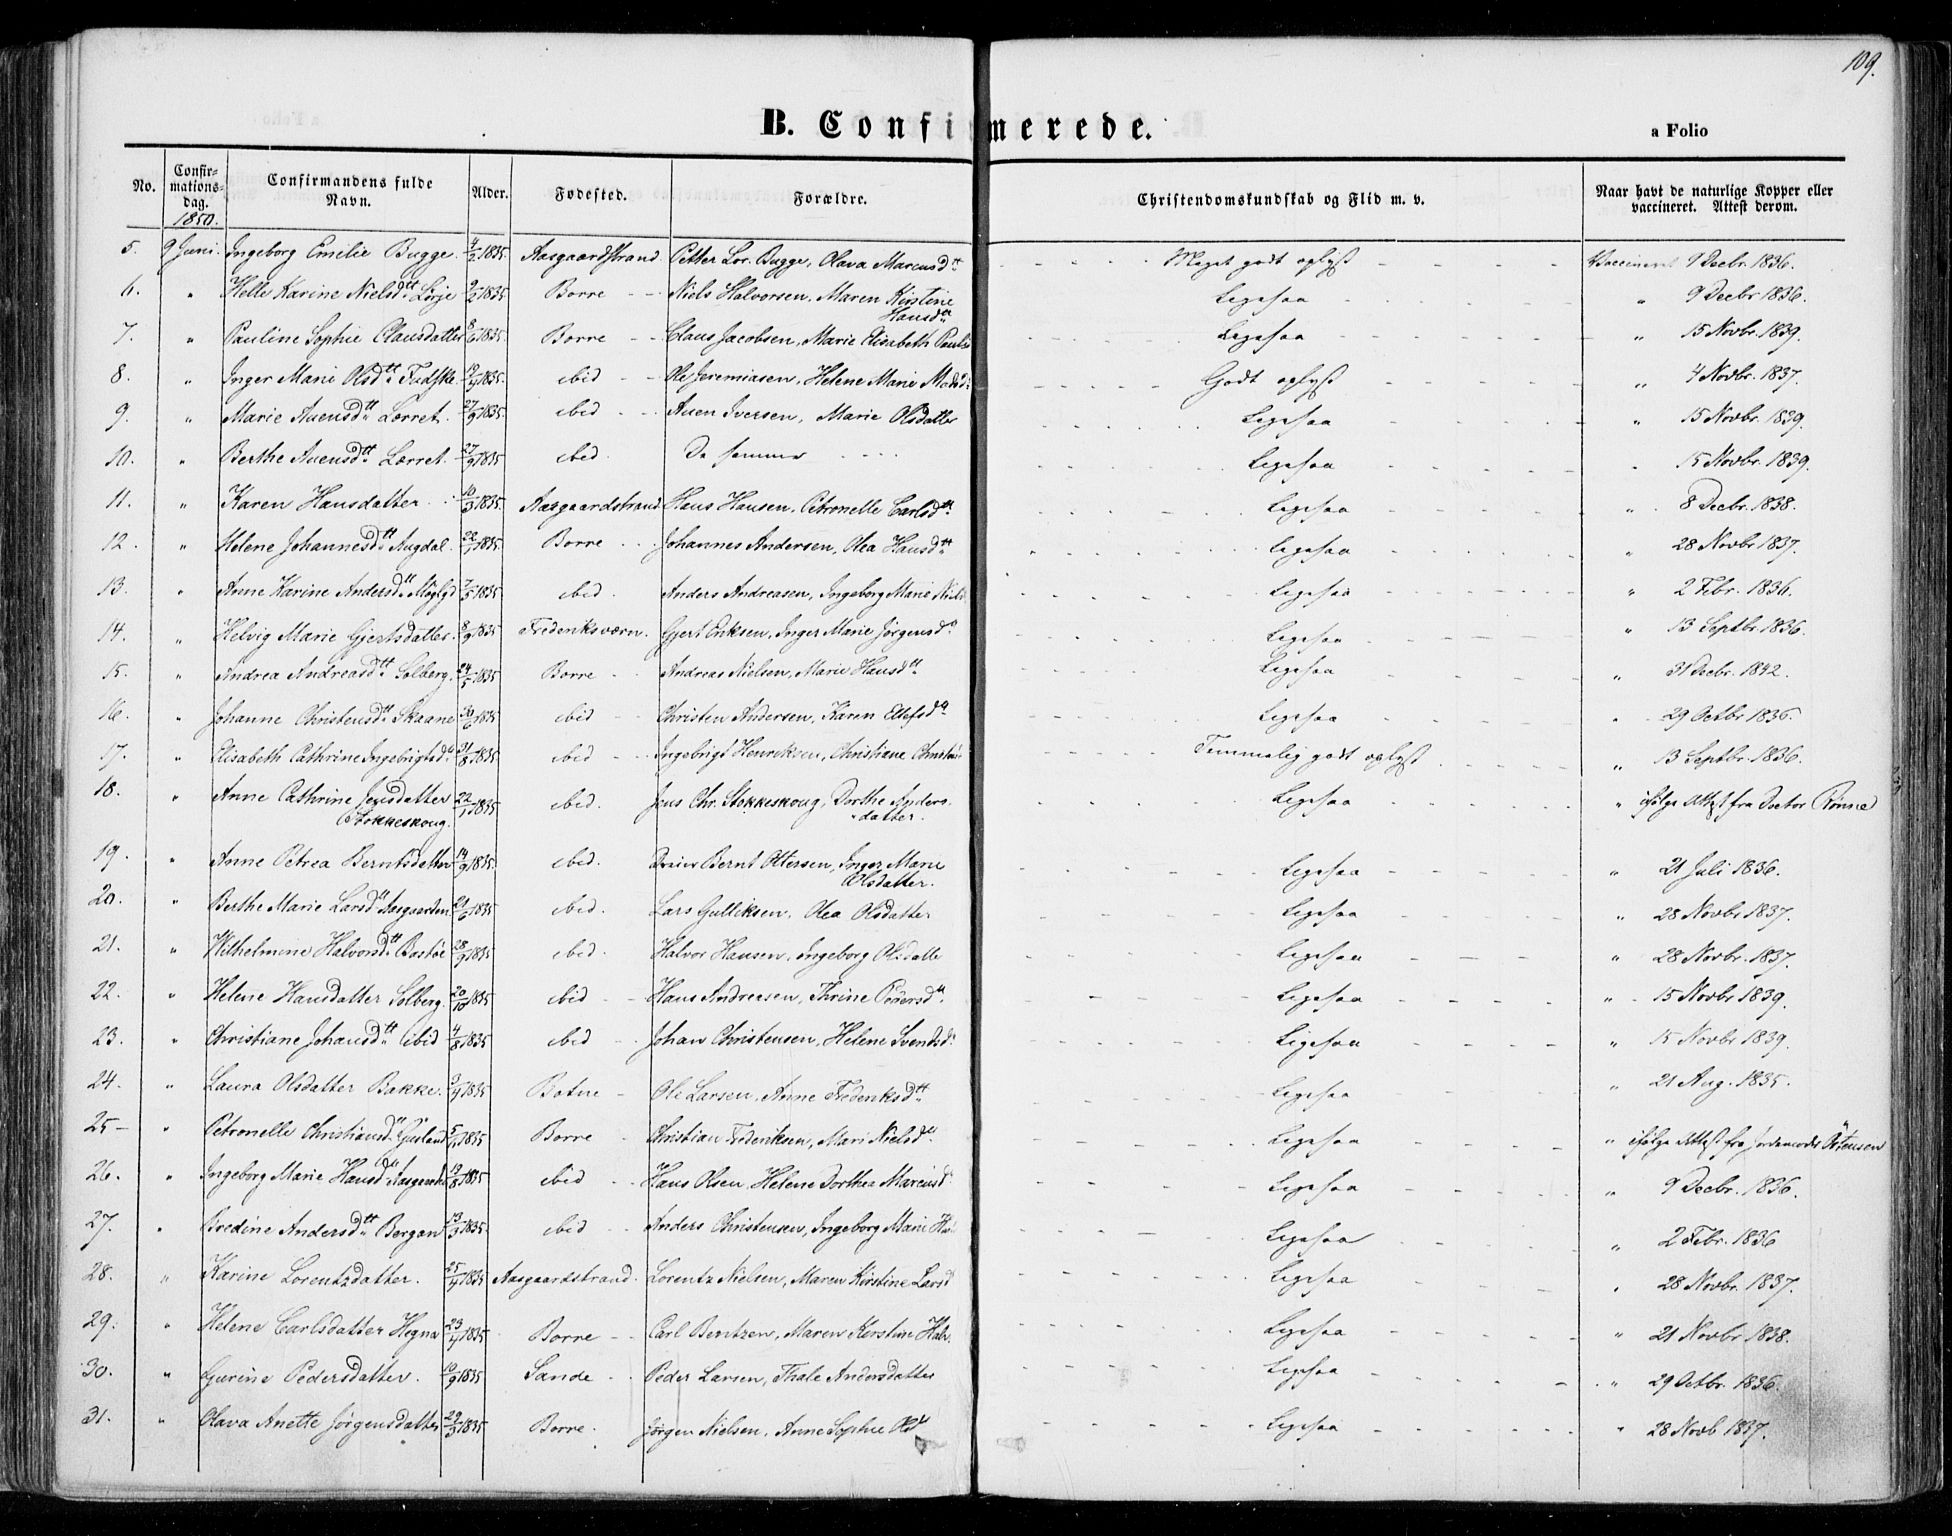 109.
B. Confirmerede.
a Folio
No. Confirmationsdag. Confirmandens fulde Navn. Alder. Fødested. Forældre. Christendomskundskab og Flid m. v. Naar havt de naturlige Kopper eller vaccineret. Attest derom.
1850.
5. 9 Juni. Ingeborg Emilie Bugge. 4/2 1835 Aasgaardstrand Petter Lor. Bugge, Olava Marcusdtt Meget godt oplyst Vaccineret 9 Decbr 1836.
6. " Helle Karine Nielsdtt 1835 Borre Niels Halvorsen, Maren Kirstine Hansdtt Ligesaa " 9 Decbr 1836.
7. " Pauline Sophie Clausdatter 1835. Borre Claus Jacobsen, Marie Elisabeth Ligesaa " 15 Novbr. 1839.
8. " Inger Marie Olsdtt 1835. ibid Ole Jeremiasen, Helene Marie Godt oplyst " 4 Novbr. 1837.
9. " Marie Auensdtt Lorret. 27/9 1835 ibid Auen Iversen, Marie Olsdatter Ligesaa " 15 Novbr. 1839.
10. " Berthe Auensdtt Lorret. 27/9 1835 ibid. De samme Ligesaa " 15 Novbr. 1839.
11. " Karen Hansdatter 10/3 1835. Aasgaardstrand Hans Hansen, Petronelle Carlsdtt Ligesaa " 8 Decbr. 1838.
12. " Helene Johannesdtt Augdal. 1835. Borre Johannes Andersen, Olea Hansdtt Ligesaa " 28 Novbr 1837.
13. " Anne Karine Andersdtt 7/5 1835 ibid. Anders Andreasen, Ingeborg Marie Ligesaa " 2 Febr. 1836.
14. " Helvig Marie Gjertsdatter. 8/9 1835 Frederiksværn. Gjert Eriksen, Inger Marie Jørgensd Ligesaa " 13 Septbr 1836.
15. " Andrea Andreasdtt Solberg. 24/5 1835 Borre Andreas Nielsen, Marie Hansdtt Ligesaa " 31 Decbr. 1842.
16. " Johanne Christensdtt Skaane 30/6 1835 ibid Christen Andersen, Karen Ellefsd Ligesaa " 29 Octbr 1836.
17. " Elisabeth Cathrine Ingebrigtsd 31/8 1835 ibid Ingebrigt Henriksen, Christiane Temmelig godt oplyst " 13 Septbr. 1836.
18. " Anne Cathrine Jensdatter Stokkeskoug. 22/1 1835 ibid. Jens Chr. Stokkeskoug, Dorthe Andersdatter. Ligesaa " ifølge Attest fra Doctor Rønne
19. " Anne Petrea Berntsdatter 14/9 1835. ibid. Bernt Ottersen, Inger Marie Olsdatter. Ligesaa " 21 Juli 1836.
20. " Berthe Marie Larsdtt Aasgaarden 1835 ibid. Lars Gulliksen, Olea Olsdatter Ligesaa " 28 Novbr 1837.
21. " Wilhelmine Halvorsdtt Bastøe 28/9 1835 ibid. Halvor Hansen, Ingeborg Olsdatte Ligesaa " 28 Novbr. 1837.
22. " Helene Hansdatter Solberg. 20/10 1835 ibid Hans Andreasen, Thrine Pedersdtt Ligesaa " 15 Novbr 1839.
23. " Christiane Johansdtt ibid 4/8 1835 ibid Johan Christensen, Helene Svendsd Ligesaa " 15 Novbr 1839.
24. " Laura Olsdatter Bakke. 1835 Botne Ole Larsen, Anne Frederiksdtt Ligesaa " 21 Aug. 1835.
25 " Petronelle Christiansdtt 1835 Borre Christian Frederiksen, Mari Nielsdtt Ligesaa " ifølge Attest fra Jordemoder
26. " Ingeborg Marie Hansdtt 1835 ibid Hans Olsen, Helene Dorthea Marcusd Ligesaa " 9 Decbr. 1836.
27. " Andersdtt Bergan 13/3 1835. ibid Anders Christensen, Ingeborg Marie Ligesaa " 2 Febr. 1836
28. " Karine Lorentzdatter. 1835 Aasgaardstrand. Lorentz Nielsen, Maren Kirstine Larsd Ligesaa " 28 Novbr. 1837.
29. " Helene Carlsdatter Hegna 1835 Borre Carl Bentzen, Maren Kirstine Halv. Ligesaa " 21 Novbr 1838.
30. " Gurine Pedersdatter. 1835 Sande Peder Larsen, Thale Andersdatter Ligesaa " 29 Octbr. 1836.
31. " Olava Anette Jørgensdatter 29/3 1835 Borre. Jørgen Nielsen, Anne Sophie Ligesaa " 28 Novb 1837.